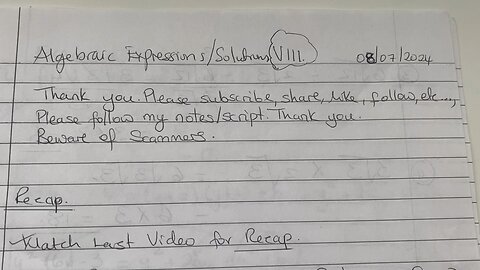 Algebraic Expressions/Solutions VIII. 08/07/2024
Thank you. Please subscribe, share, like, follow, etc...,
Please follow my notes/script. Thank you.
Beware of Scammers.
Recap.
Watch Last Video for Recap.